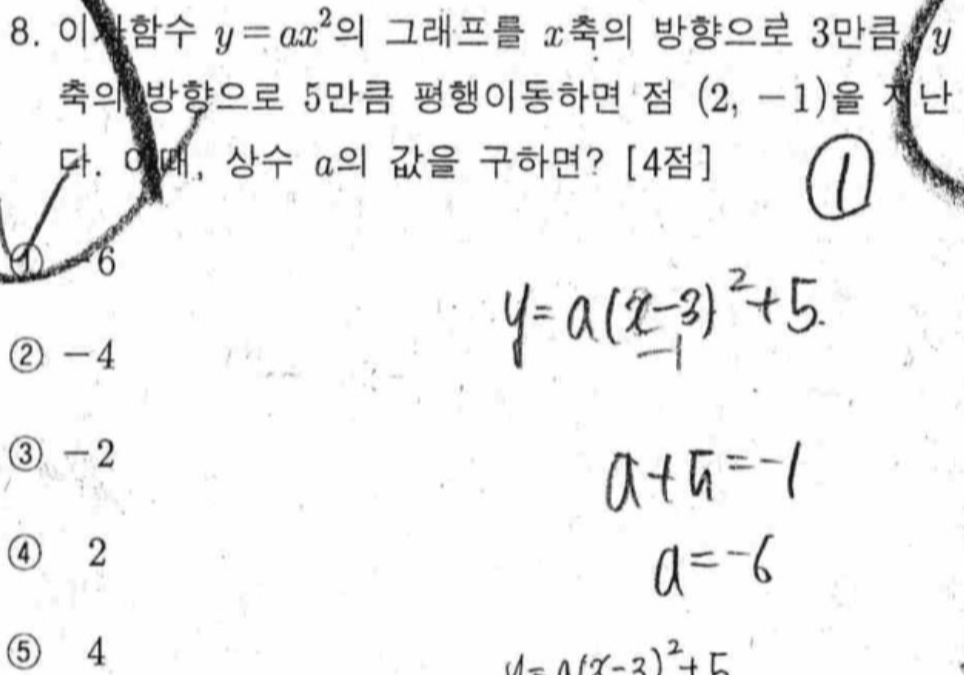 8. 이차함수 y=ax²의 그래프를 x축의 방향으로 3만큼 y
축의 방향으로 5만큼 평행이동하면 점 (2, -1)을 지난
다. 이때, 상수 a의 값을 구하면? [4점]
①
① -6
y=a(x-3)²+5.
-1
② -4
③ -2
a+5=-1
④ 2
a=-6
⑤ 4
y=a(x-3)²+5